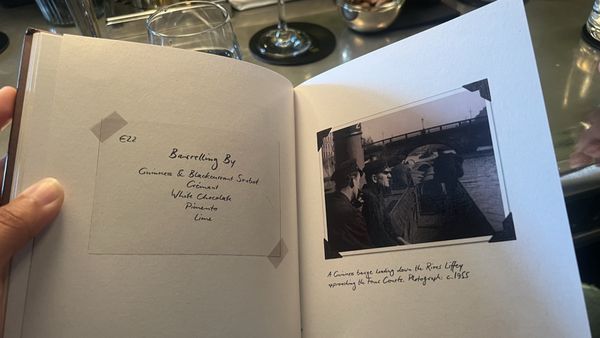 €22
Barrelling By
Guinness & Blackcurrant Sorbet
Crémant
White Chocolate
Pimento
Lime
A Guinness barge heading down the River Liffey
approaching the Four Courts. Photograph: c.1955